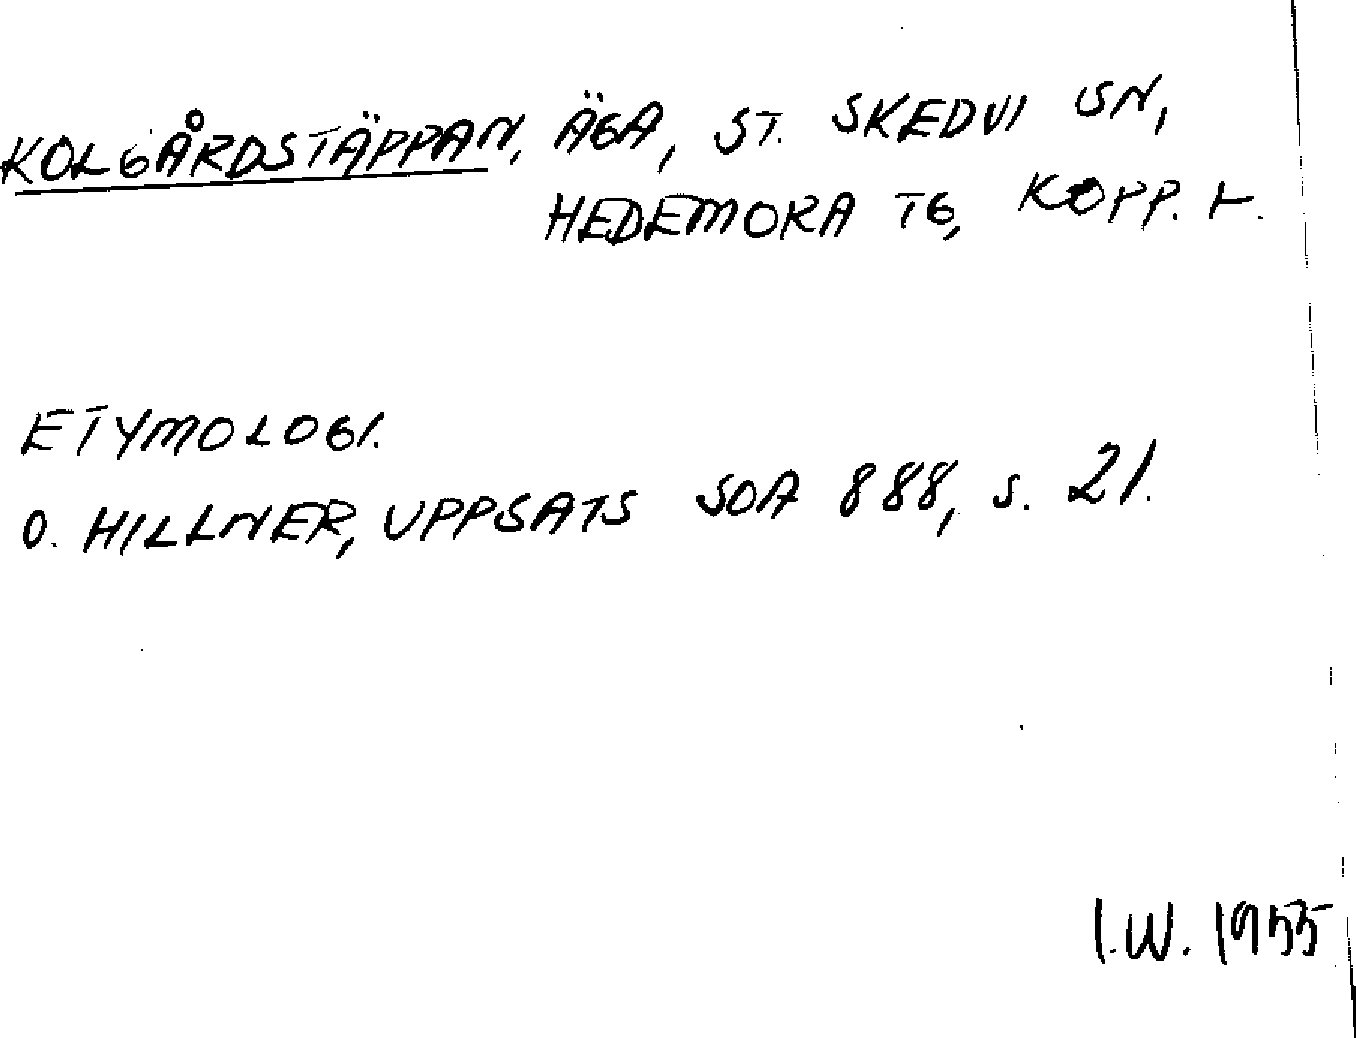 KOLGÅRDSTÄPPAN, ÄGA, ST. SKEDVI SN,
HEDEMORA TG, KOPP. L.
ETYMOLOGI.
O. HILLNER, UPPSATS SOA 888, s. 21.
I.W. 1955